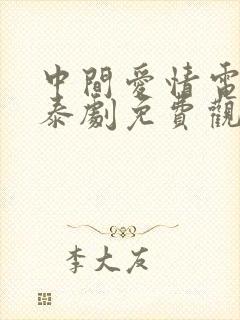 中間愛情電
泰劇免費觀
李大友